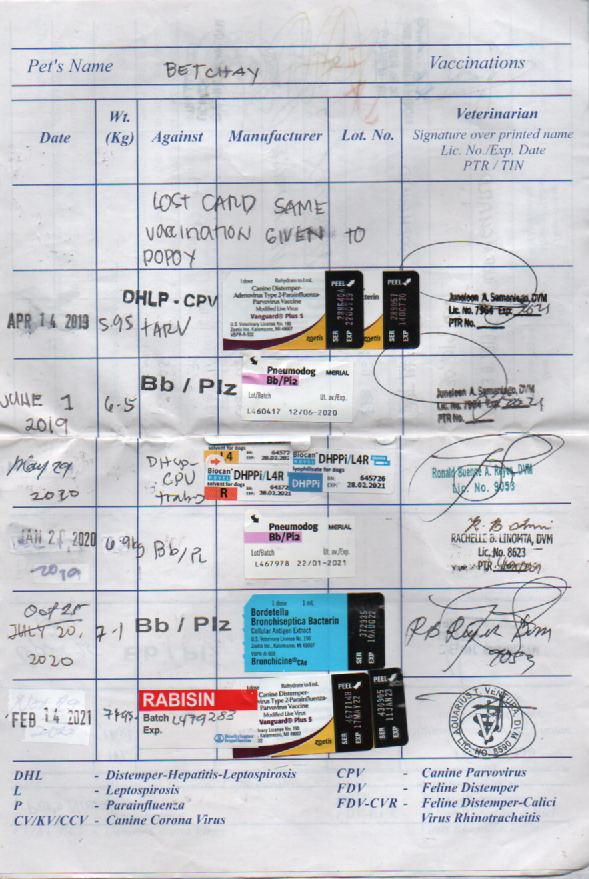 Pet's Name BETCHAY Vaccinations
Date Wt. (Kg) Against Manufacturer Lot. No. Veterinarian
Signature over printed name
Lic. No./Exp. Date
PTR / TIN
LOST CARD SAME
VACCINATION GIVEN TO
POPOY
APR 14 2019 5.95 DHLP-CPV
+ARV
1 dose Rehydrate to 1 mL
Canine Distemper-
Adenovirus Type 2-Parainfluenza-
Parvovirus Vaccine
Modified Live Virus
Vanguard® Plus 5
U.S. Veterinary License No. 190
Zoetis Inc. Kalamazoo, MI 49007
zoetis
PEEL
SER
EXP
PEEL
SER
EXP
Juneleen A. Samaniego, DVM
Lic. No. 7964 Exp. 2021
PTR No.
JUNE 1
2019
6.5
Bb / PIz
Pneumodog MERIAL
Bb/Pi2
Lot/Batch Ut. av./Exp.
L460417 12/06-2020
Juneleen A. Samaniego, DVM
Lic. No. 7964 Exp.
PTR No.
May 29
2020
CPV
solvent for dogs
L4
28.02.2021
Biocan NOVEL DHPPi/L4R
solvent for dogs
R
28.02.2021
Biocan NOVEL DHPPi/L4R
lyophilisate for dogs
DHPPi 645726
EXP. 28.02.2021
Lic. No. 9053
JAN 2020
2019
Bb/PL
Pneumodog MERIAL
Bb/Pi2
Lot/Batch Ut. av./Exp.
L467978 22/01-2021
RACHELLE B. LINOHTA, DVM
Lic. No. 8623
PTR
JULY 20,
2020
7.1
Bb / PIz
1 dose 1 mL
Bordetella
Bronchiseptica Bacterin
Cellular Antigen Extract
U.S. Veterinary License No. 190
Zoetis Inc. Kalamazoo, MI 49007
Bronchicine® CAe
SER
EXP
9053
FEB 14 2021
RABISIN
Batch L479283
Exp.
Boehringer Ingelheim
Rehydrate to 1 mL
Canine Distemper-
Adenovirus Type 2-Parainfluenza-
Parvovirus Vaccine
Modified Live Virus
Vanguard® Plus 5
Kalamazoo, MI 49007
zoetis
PEEL
SER
EXP 17MAY22
PEEL
SER
EXP 11JAN23
AQUERIUS T. VENTURA, D.V.M.
LIC. NO. 8590
DHL - Distemper-Hepatitis-Leptospirosis
L - Leptospirosis
P - Parainfluenza
CV/KV/CCV - Canine Corona Virus
CPV - Canine Parvovirus
FDV - Feline Distemper
FDV-CVR - Feline Distemper-Calici
Virus Rhinotracheitis